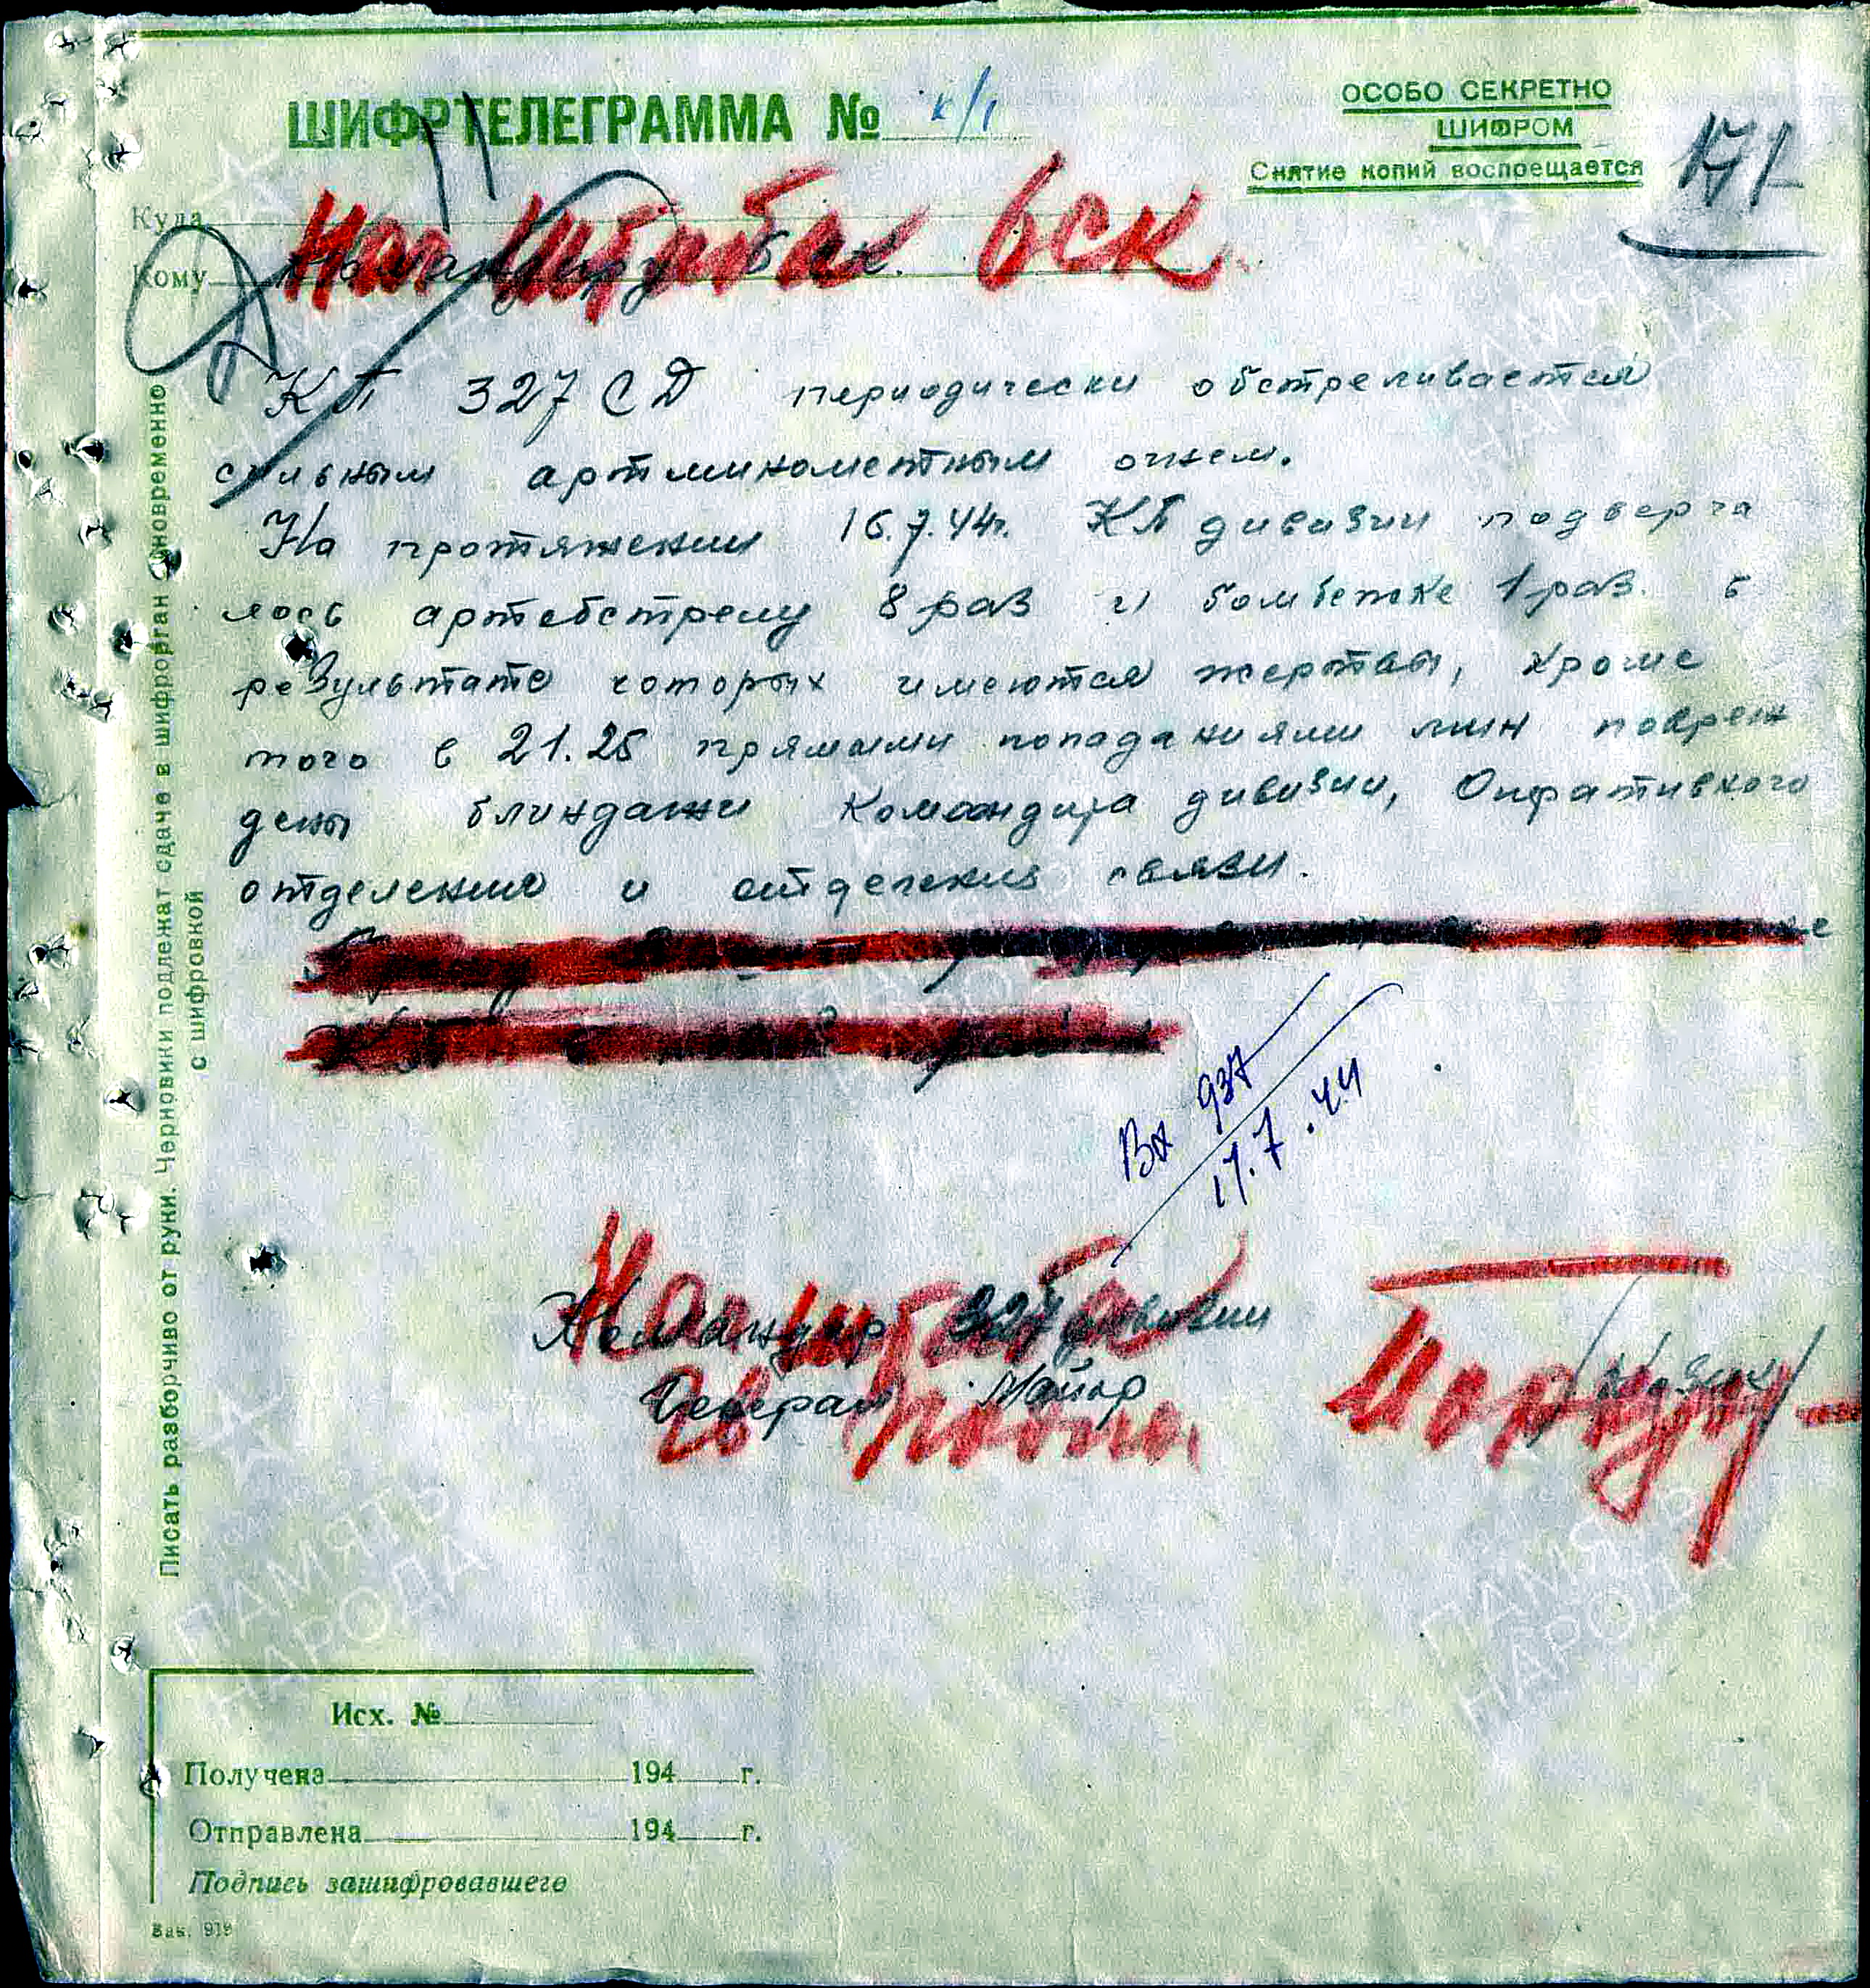 ШИФРТЕЛЕГРАММА № к/1
ОСОБО СЕКРЕТНО
ШИФРОМ
Снятие копий воспрещается
171
Куда
Кому Командиру 6 ск.
6СК
КП 327 СД периодически обстреливается
сильным артминометным огнем.
На протяжении 16.7.44г. КП дивизии подверга
лось артобстрелу 8 раз и бомбежке 1 раз. в
результате которых имеются жертвы, кроме
того в 21.25 прямыми попаданиями мин повреж
дены блиндажи Командира дивизии, Опративного
отделения и отделения связи.
Вх 937
17.7.44
Командир 327 дивизии
Генерал Майор
Писать разборчиво от руки. Черновики подлежат сдаче в шифрорган одновременно
с шифровкой
Исх. №
Получена 194 г.
Отправлена 194 г.
Подпись зашифровавшего
Зак. 918
ПАМЯТЬ
НАРОДА